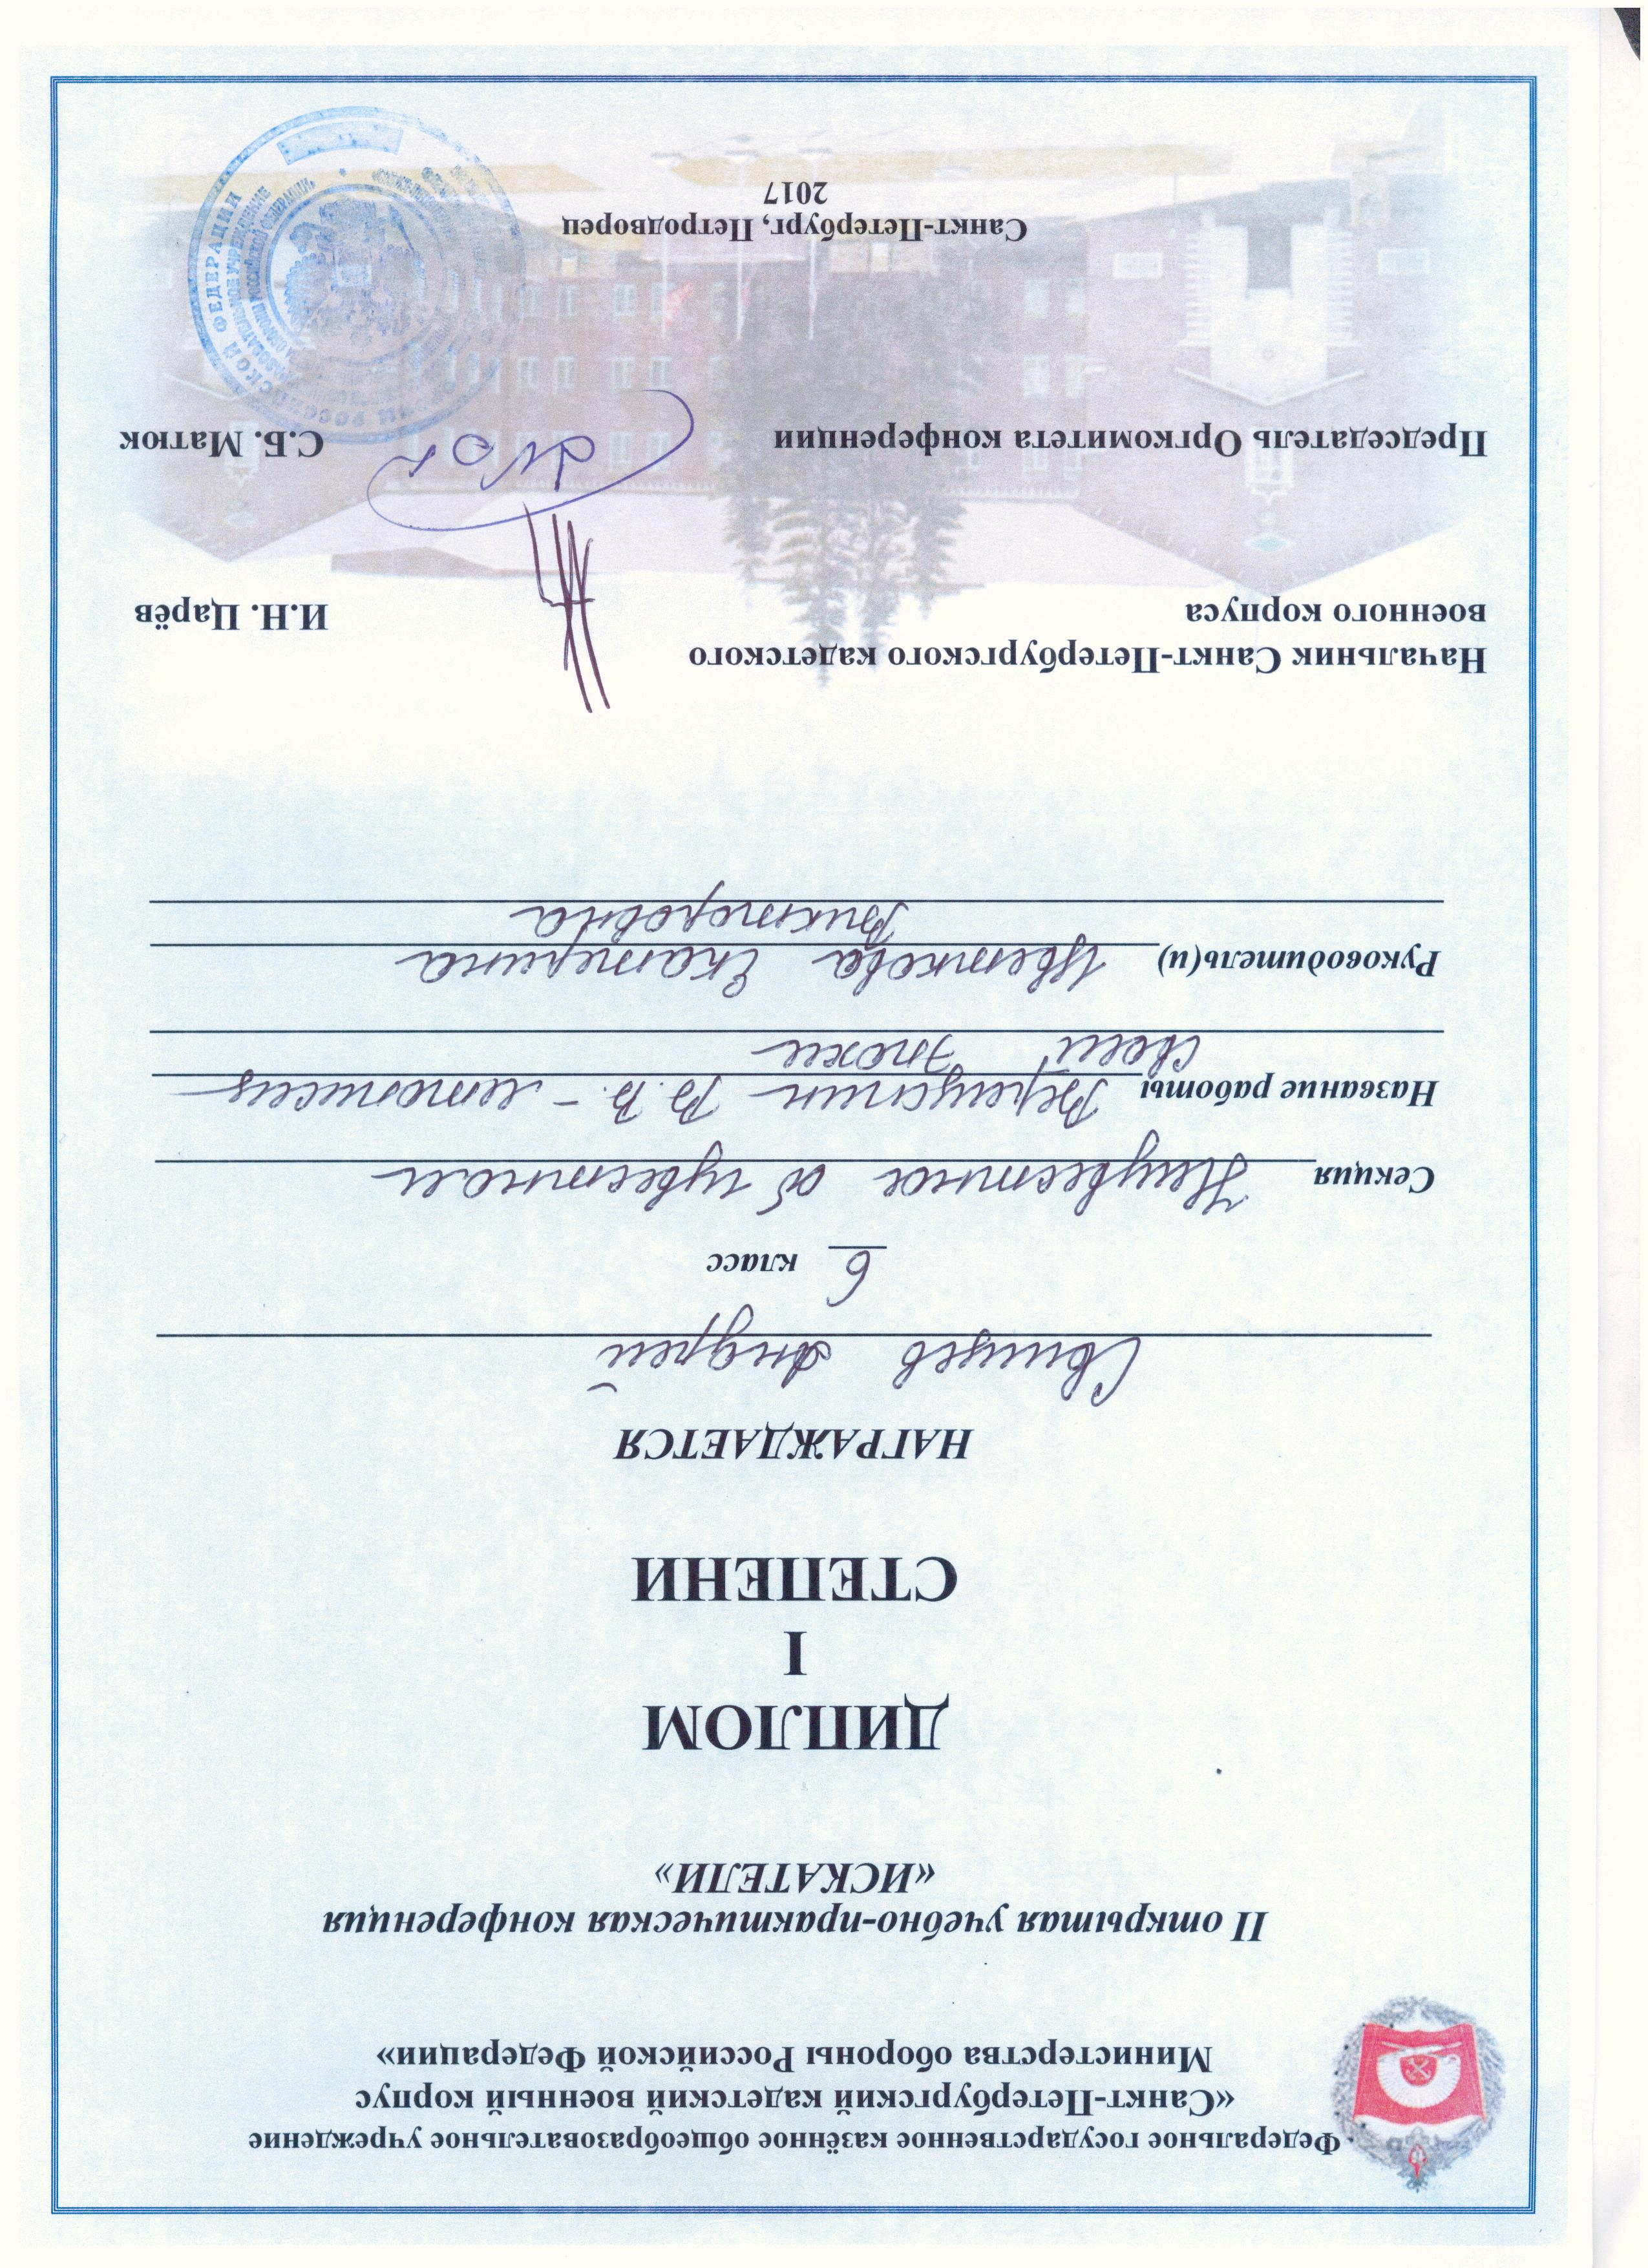 Федеральное государственное казённое общеобразовательное учреждение
«Санкт-Петербургский кадетский военный корпус
Министерства обороны Российской Федерации»
II открытая учебно-практическая конференция
«ИСКАТЕЛИ»
ДИПЛОМ
I
СТЕПЕНИ
НАГРАЖДАЕТСЯ
Свищев Андрей
6 класс
Секция Неизвестное об известном
Название работы Верещагин В.В. – летописец
своей эпохи
Руководитель(и) Цветкова Екатерина
Викторовна
Начальник Санкт-Петербургского кадетского
военного корпуса И.Н. Царёв
Председатель Оргкомитета конференции С.Б. Матюк
Санкт-Петербург, Петродворец
2017